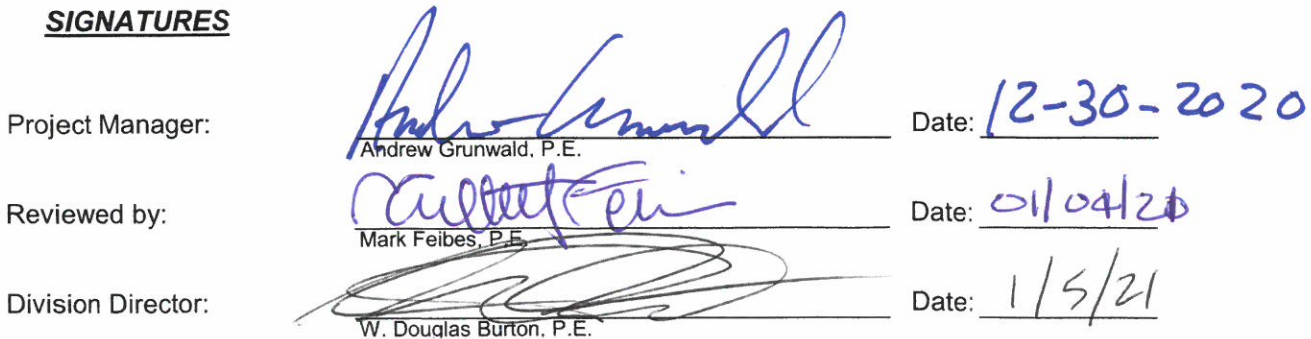 SIGNATURES
Project Manager: Date: 12-30-2020
Andrew Grunwald, P.E.
Reviewed by: Date: 01/04/21
Mark Feibes, P.E.
Division Director: Date: 1/5/21
W. Douglas Burton, P.E.